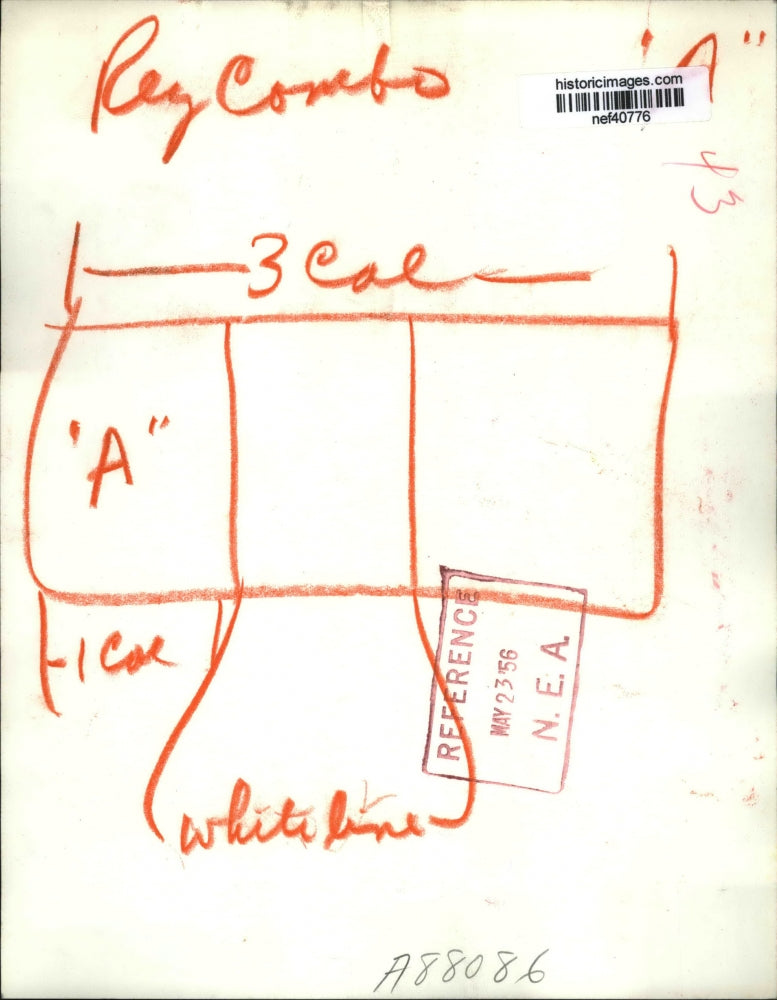 Reg Combo
"A"
historicimages.com
nef40776
43
3 Col
'A"
1 Col
REFERENCE
MAY 23 '56
N. E. A.
white line
A88086